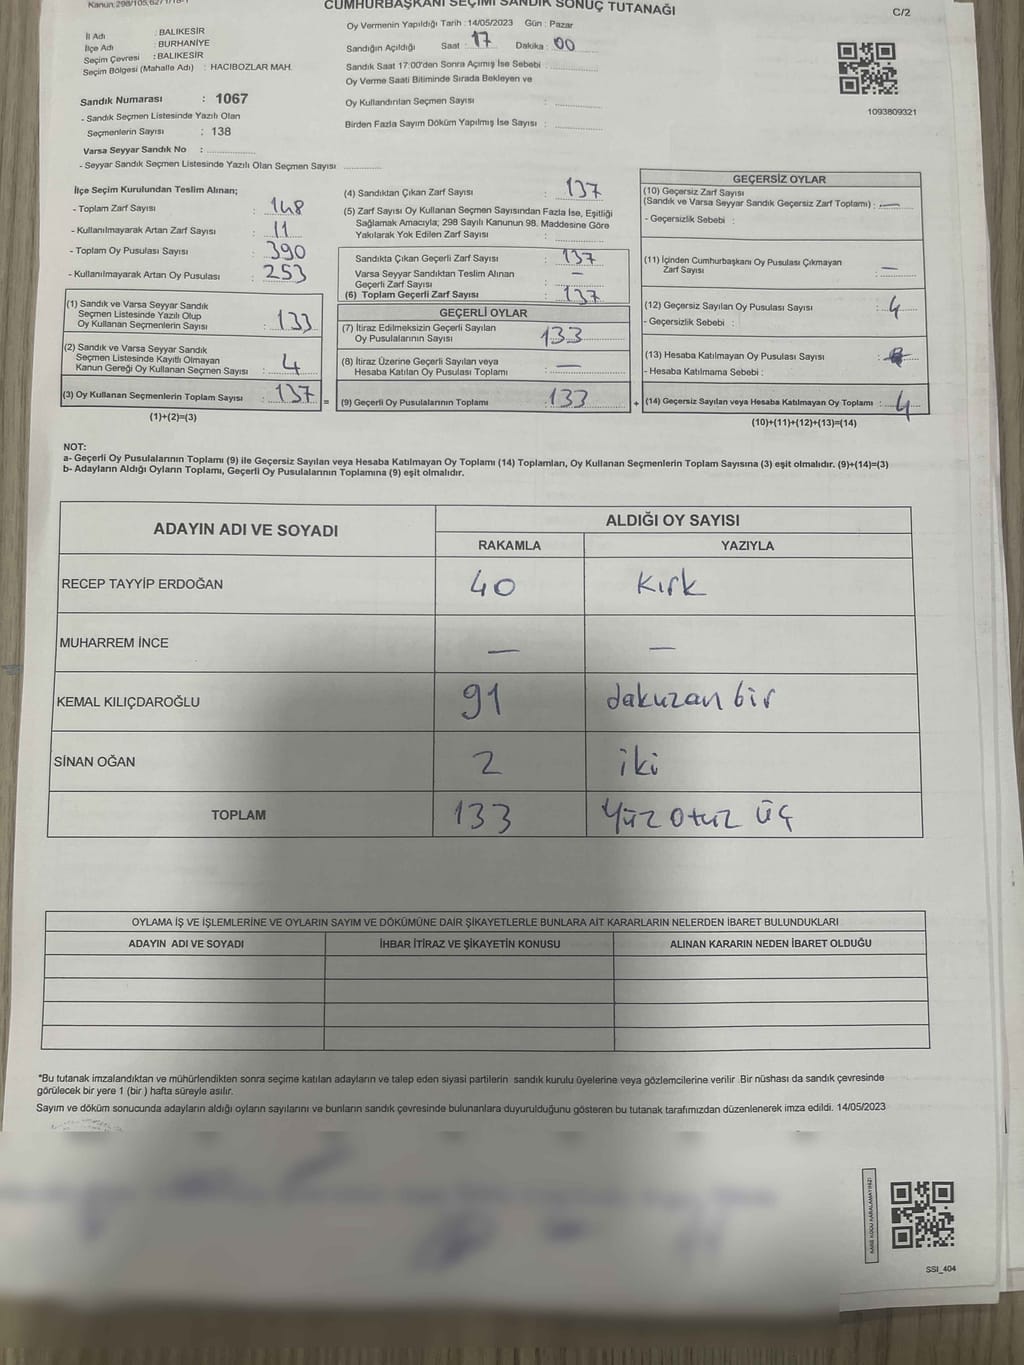 CUMHURBAŞKANI SEÇİMİ SANDIK SONUÇ TUTANAĞI
C/2
İl Adı : BALIKESİR
İlçe Adı : BURHANİYE
Seçim Çevresi : BALIKESİR
Seçim Bölgesi (Mahalle Adı) : HACIBOZLAR MAH.
Sandık Numarası : 1067
- Sandık Seçmen Listesinde Yazılı Olan
Seçmenlerin Sayısı : 138
Varsa Seyyar Sandık No :
- Seyyar Sandık Seçmen Listesinde Yazılı Olan Seçmen Sayısı
Oy Vermenin Yapıldığı Tarih : 14/05/2023 Gün : Pazar
Sandığın Açıldığı Saat : 17 Dakika : 00
Sandık Saat 17:00'den Sonra Açımış İse Sebebi :
Oy Verme Saati Bitiminde Sırada Bekleyen ve
Oy Kullandırılan Seçmen Sayısı :
Birden Fazla Sayım Döküm Yapılmış İse Sayısı :
1093809321
İlçe Seçim Kurulundan Teslim Alınan;
- Toplam Zarf Sayısı : 148
- Kullanılmayarak Artan Zarf Sayısı : 11
- Toplam Oy Pusulası Sayısı : 390
- Kullanılmayarak Artan Oy Pusulası : 253
(1) Sandık ve Varsa Seyyar Sandık
Seçmen Listesinde Yazılı Olup
Oy Kullanan Seçmenlerin Sayısı : 133
(2) Sandık ve Varsa Seyyar Sandık
Seçmen Listesinde Kayıtlı Olmayan
Kanun Gereği Oy Kullanan Seçmen Sayısı : 4
(3) Oy Kullanan Seçmenlerin Toplam Sayısı : 137 =
(1)+(2)=(3)
(4) Sandıktan Çıkan Zarf Sayısı : 137
(5) Zarf Sayısı Oy Kullanan Seçmen Sayısından Fazla İse, Eşitliği
Sağlamak Amacıyla; 298 Sayılı Kanunun 98. Maddesine Göre
Yakılarak Yok Edilen Zarf Sayısı :
Sandıkta Çıkan Geçerli Zarf Sayısı : 137
Varsa Seyyar Sandıktan Teslim Alınan
Geçerli Zarf Sayısı : —
(6) Toplam Geçerli Zarf Sayısı : 137
GEÇERLİ OYLAR
(7) İtiraz Edilmeksizin Geçerli Sayılan
Oy Pusulalarının Sayısı : 133
(8) İtiraz Üzerine Geçerli Sayılan veya
Hesaba Katılan Oy Pusulası Toplamı : —
(9) Geçerli Oy Pusulalarının Toplamı : 133 +
GEÇERSİZ OYLAR
(10) Geçersiz Zarf Sayısı
(Sandık ve Varsa Seyyar Sandık Geçersiz Zarf Toplamı) : —
- Geçersizlik Sebebi :
(11) İçinden Cumhurbaşkanı Oy Pusulası Çıkmayan
Zarf Sayısı : —
(12) Geçersiz Sayılan Oy Pusulası Sayısı : 4
- Geçersizlik Sebebi :
(13) Hesaba Katılmayan Oy Pusulası Sayısı :
- Hesaba Katılmama Sebebi :
(14) Geçersiz Sayılan veya Hesaba Katılmayan Oy Toplamı : 4
(10)+(11)+(12)+(13)=(14)
NOT:
a- Geçerli Oy Pusulalarının Toplamı (9) ile Geçersiz Sayılan veya Hesaba Katılmayan Oy Toplamı (14) Toplamları, Oy Kullanan Seçmenlerin Toplam Sayısına (3) eşit olmalıdır. (9)+(14)=(3)
b- Adayların Aldığı Oyların Toplamı, Geçerli Oy Pusulalarının Toplamına (9) eşit olmalıdır.
ADAYIN ADI VE SOYADI
ALDIĞI OY SAYISI
RAKAMLA YAZIYLA
RECEP TAYYİP ERDOĞAN 40 Kırk
MUHARREM İNCE — —
KEMAL KILIÇDAROĞLU 91 dakuzan bir
SİNAN OĞAN 2 iki
TOPLAM 133 Yüz otuz üç
OYLAMA İŞ VE İŞLEMLERİNE VE OYLARIN SAYIM VE DÖKÜMÜNE DAİR ŞİKAYETLERLE BUNLARA AİT KARARLARIN NELERDEN İBARET BULUNDUKLARI
ADAYIN ADI VE SOYADI İHBAR İTİRAZ VE ŞİKAYETİN KONUSU ALINAN KARARIN NEDEN İBARET OLDUĞU
*Bu tutanak imzalandıktan ve mühürlendikten sonra seçime katılan adayların ve talep eden siyasi partilerin sandık kurulu üyelerine veya gözlemcilerine verilir. Bir nüshası da sandık çevresinde
görülecek bir yere 1 (bir ) hafta süreyle asılır.
Sayım ve döküm sonucunda adayların aldığı oyların sayılarını ve bunların sandık çevresinde bulunanlara duyurulduğunu gösteren bu tutanak tarafımızdan düzenlenerek imza edildi. 14/05/2023
SSI_404